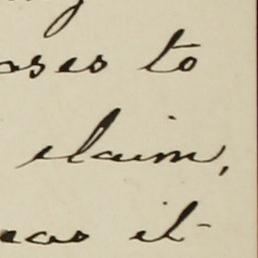 oses to
claim,
eas it